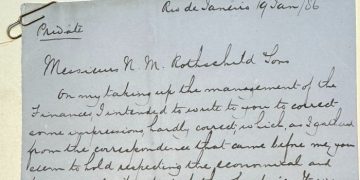 Rio de Janeiro 19 Jan/86
Private
Messieurs N. M. Rothschild Sons
On my taking up the management of the
Finances, I intended to write to you to correct
some impressions, hardly correct, which, as I gathered
from the correspondence that came before me, you
seem to hold respecting the economical and